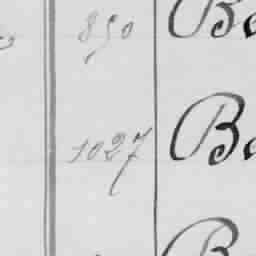 850 Be
1027 Be
B